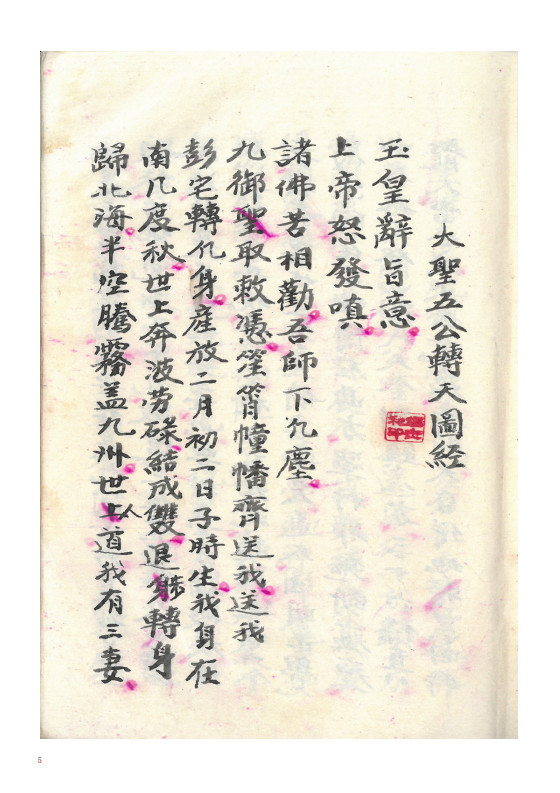 大聖五公轉天圖經
玉皇辭旨意
上帝怒發嗔
諸佛苦相勸吾師下凡塵
九御聖取敕憑笙筲幢幡齊送我送我
彭宅轉化身産放二月初二日子時生我身在
南几度秋世上奔波劳碌結成雙退轉身
歸北海半空騰霧盖九州世上人道我有三妻
5